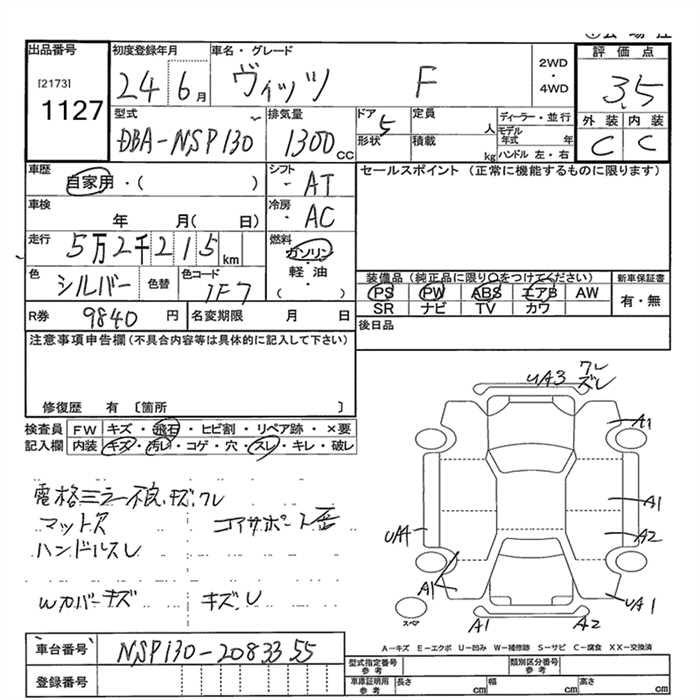 出品番号 初度登録年月 車名・グレード 評価点
[2173] 24 6月 ヴィッツ F 2WD・4WD 3.5
1127 型式 排気量 ドア 定員 ディーラー・並行 外装 内装
DBA-NSP130 1300cc 5 人 モデル年式 年 C C
形状 積載 kg ハンドル 左・右
車歴 シフト セールスポイント(正常に機能するものに限ります)
自家用・( ) ・AT
車検 冷房
年 月( 日) ・AC
走行 燃料
5万2千215km ガソリン・
色 色替 色コード 軽油・ 装備品(純正品に限り○をつけてください) 新車保証書
シルバー 1F7 ( ) PS PW ABS エアB AW 有・無
R券 9840円 名変期限 月 日 SR ナビ TV カワ
注意事項申告欄(不具合内容等は具体的に記入して下さい) 後日品
修復歴 有 〔箇所 〕
検査員 FW キズ・飛石・ヒビ割・リペア跡・×要
記入欄 内装 キズ・汚レ・コゲ・穴・スレ・キレ・破レ
UA3 ワレ
ズレ
A1
電格ミラー不良、キズ、ワレ
マット欠 コアサポート歪
ハンドルスレ
A1
UA1 A2
A1
Wカバーキズ キズレ
スペア UA1
A1 A2
車台番号 NSP130-2083355
A-キズ E-エクボ U-凹み W-補修跡 S-サビ C-腐食 XX-交換済
登録番号 型式指定番号 参考 類別区分番号 参考
車庫証明用 参考 長さ cm 幅 cm 高さ cm